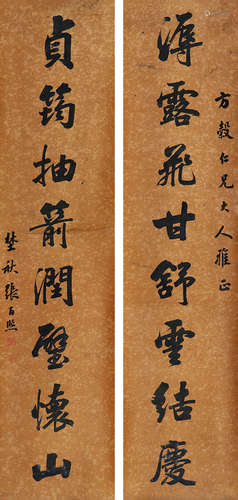 方穀仁兄大人雅正
淳露飛甘舒雲結慶
貞筠抽箭潤璧懷山
埜秋張百熙